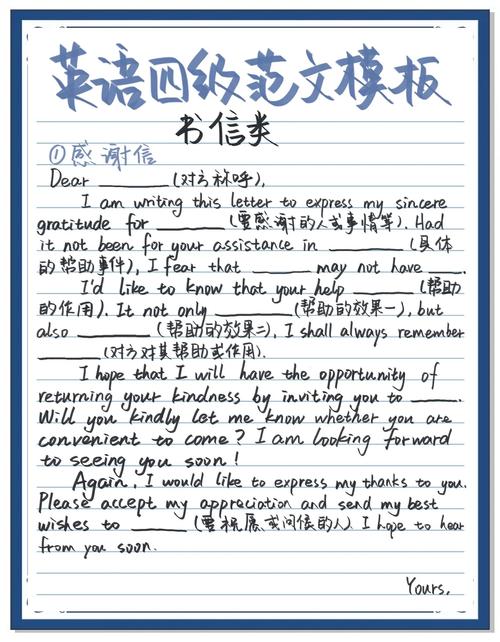 英语四级范文模板
书信类
①感谢信
Dear ______ (对方称呼),
I am writing this letter to express my sincere
gratitude for ______ (要感谢的人或事情等). Had
it not been for your assistance in ______ (具体
的帮助事件), I fear that ______ may not have ___.
I'd like to know that your help ______ (帮助
的作用). It not only ______ (帮助的效果一), but
also ______ (帮助的效果二), I shall always remember
______ (对方对其帮助或作用).
I hope that I will have the opportunity of
returning your kindness by inviting you to ____.
Will you kindly let me know whether you are
convenient to come? I am looking forward
to seeing you soon!
Again, I would like to express my thanks to you.
Please accept my appreciation and send my best
wishes to _____ (要祝愿或问候的人) I hope to hear
from you soon.
Yours,